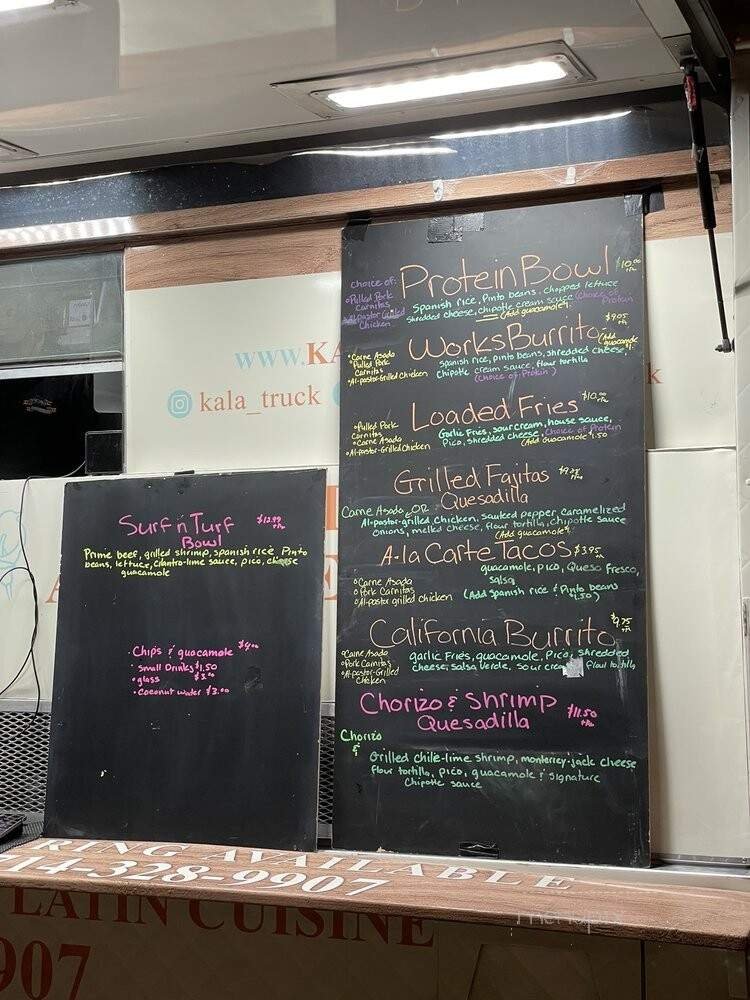 www.KA
kala_truck
k
Protein Bowl $10.00 +tx
Choice of:
Pulled Pork
Carnitas
Al-pastor Grilled
Chicken
Spanish rice, Pinto beans, chopped lettuce
shredded cheese, chipotle cream sauce (Choice of Protein
(Add guacamole $1.
Works Burrito
(Add guacamole $1.
Carne Asada
Pulled Pork
Carnitas
Al-pastor-Grilled Chicken
Spanish rice, pinto beans, shredded cheese,
Chipotle cream sauce, flour tortilla
(Choice of Protein)
Loaded Fries
Pulled Pork
Carnitas
Carne Asada
Al-pastor-Grilled Chicken
Garlic Fries, sour cream, house sauce,
Pico, shredded cheese, Choice of Protein
(Add guacamole $1.50
Grilled Fajitas
Quesadilla
Carne Asada OR
Al-pastor-grilled chicken, sautéed pepper, caramelized
onions, melted cheese, flour tortilla, chipotle sauce
(Add guacamole $1.
A-la Carte Tacos $3.95
guacamole, pico, Queso Fresco,
salsa
Carne Asada
Pork Carnitas
Al-pastor grilled chicken
(Add spanish rice & Pinto beans
$1.50)
California Burrito $9.75 +tx
Carne Asada
Pork Carnitas
Al-Pastor-Grilled
Chicken
garlic Fries, guacamole, Pico, shredded
cheese, salsa verde, sour cream flour tortilla
Chorizo & Shrimp
Quesadilla $11.50 +tx
Chorizo
&
Grilled chile-lime shrimp, monterrey-jack cheese
flour tortilla, pico, guacamole & signature
Chipotle sauce
Surf n Turf $12.99 +tx
Bowl
Prime beef, grilled shrimp, spanish rice Pinto
beans, lettuce, cilantro-lime sauce, pico, cheese
guacamole
Chips & guacamole $4.00
small Drinks $1.50
glass $3.00
coconut water $3.00
RING AVAILABLE
714-328-9907
LATIN CUISINE
907